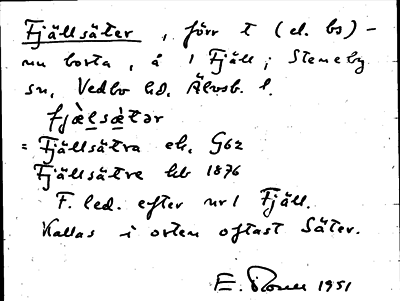 Fjällsäter, förr t (el. bs) -
nu borta, å 1 Fjäll; Steneby
sn, Vedbo hd, Älvsb. l.
fjæ̀lsæ̀tər
= Fjällsätra ek, G62
Fjällsätre hb 1876
F. led. efter nr 1 Fjäll.
Kallas i orten oftast Säter.
1951